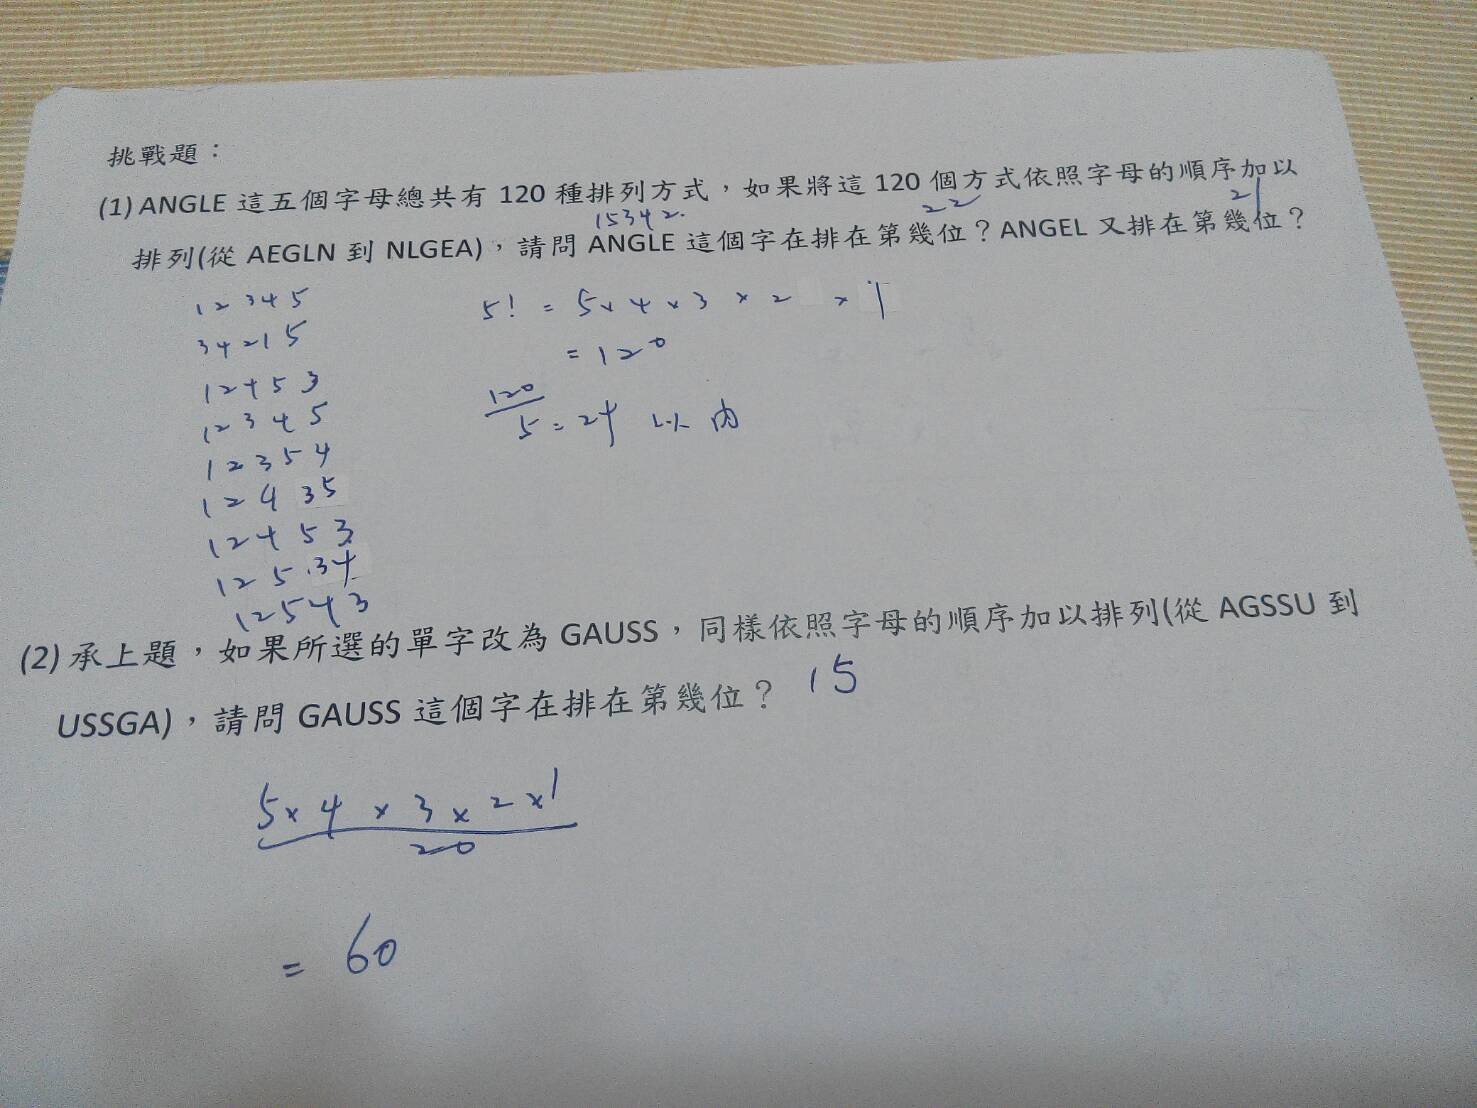 挑戰題：
(1) ANGLE 這五個字母總共有 120 種排列方式，如果將這 120 個方式依照字母的順序加以
15342.
22
21
排列(從 AEGLN 到 NLGEA)，請問 ANGLE 這個字在排在第幾位？ANGEL 又排在第幾位？
12345
34215
12453
12345
12354
12435
12453
12534
12543
5! = 5 × 4 × 3 × 2 × 1
= 120
120
5 = 24 以內
(2) 承上題，如果所選的單字改為 GAUSS，同樣依照字母的順序加以排列(從 AGSSU 到
USSGA)，請問 GAUSS 這個字在排在第幾位？ 15
5 × 4 × 3 × 2 × 1
20
= 60